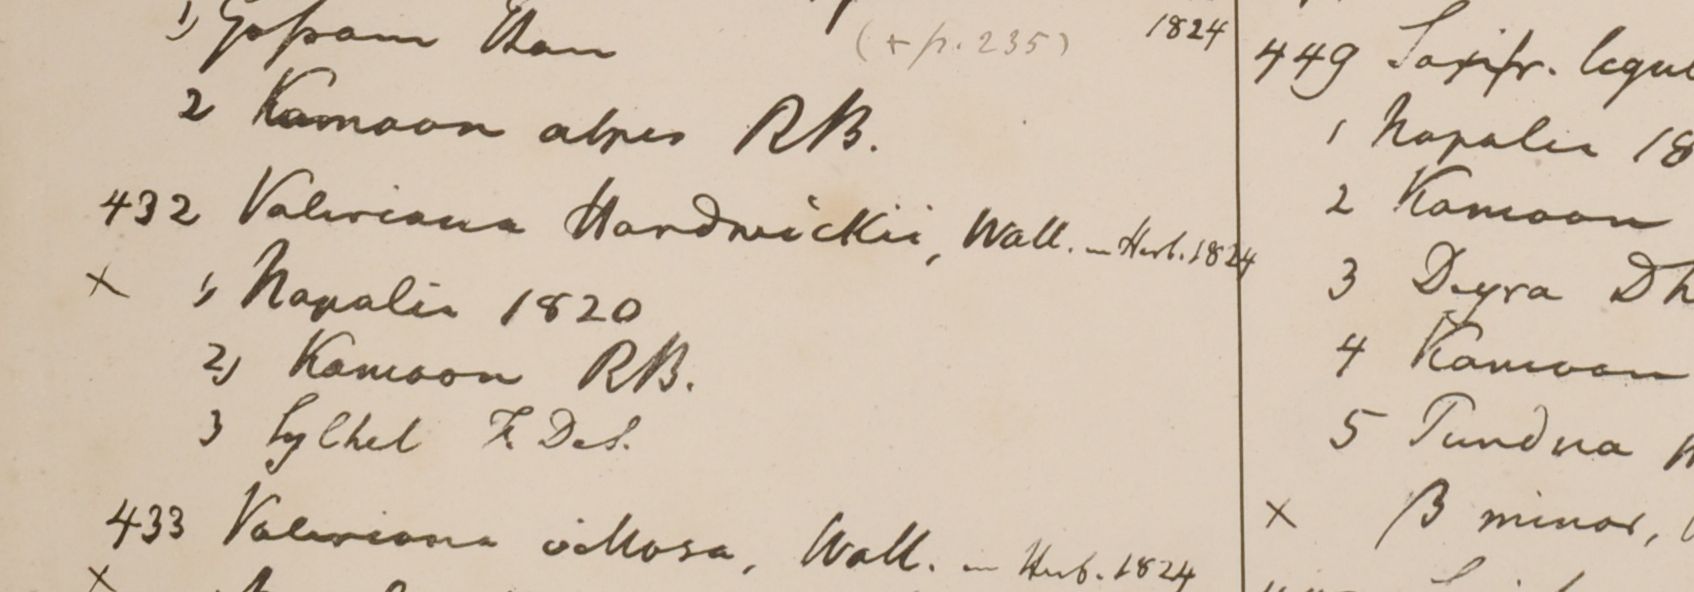 1) Gosam Than (+ p. 235) 1824
2 Kamaon alpes RB.
432 Valeriana Hardwickii, Wall. in Herb. 1824
× 1, Napalia 1820
2, Kamaon RB.
3 Sylhet F. DeS.
433 Valeriana villosa, Wall. in Herb. 1824
×
449 Saxifr. ligul
1 Napalia 18
2 Kamaon
3 Deyra Dh
4 Kamaon
5 Tundna
× β minor,